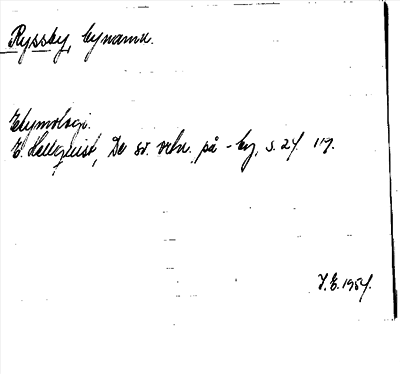 Ryssby, bynamn.
Etymologi.
E. Hellquist, De sv. ortn. på -by, s. 27. 117.
J.E. 1957.